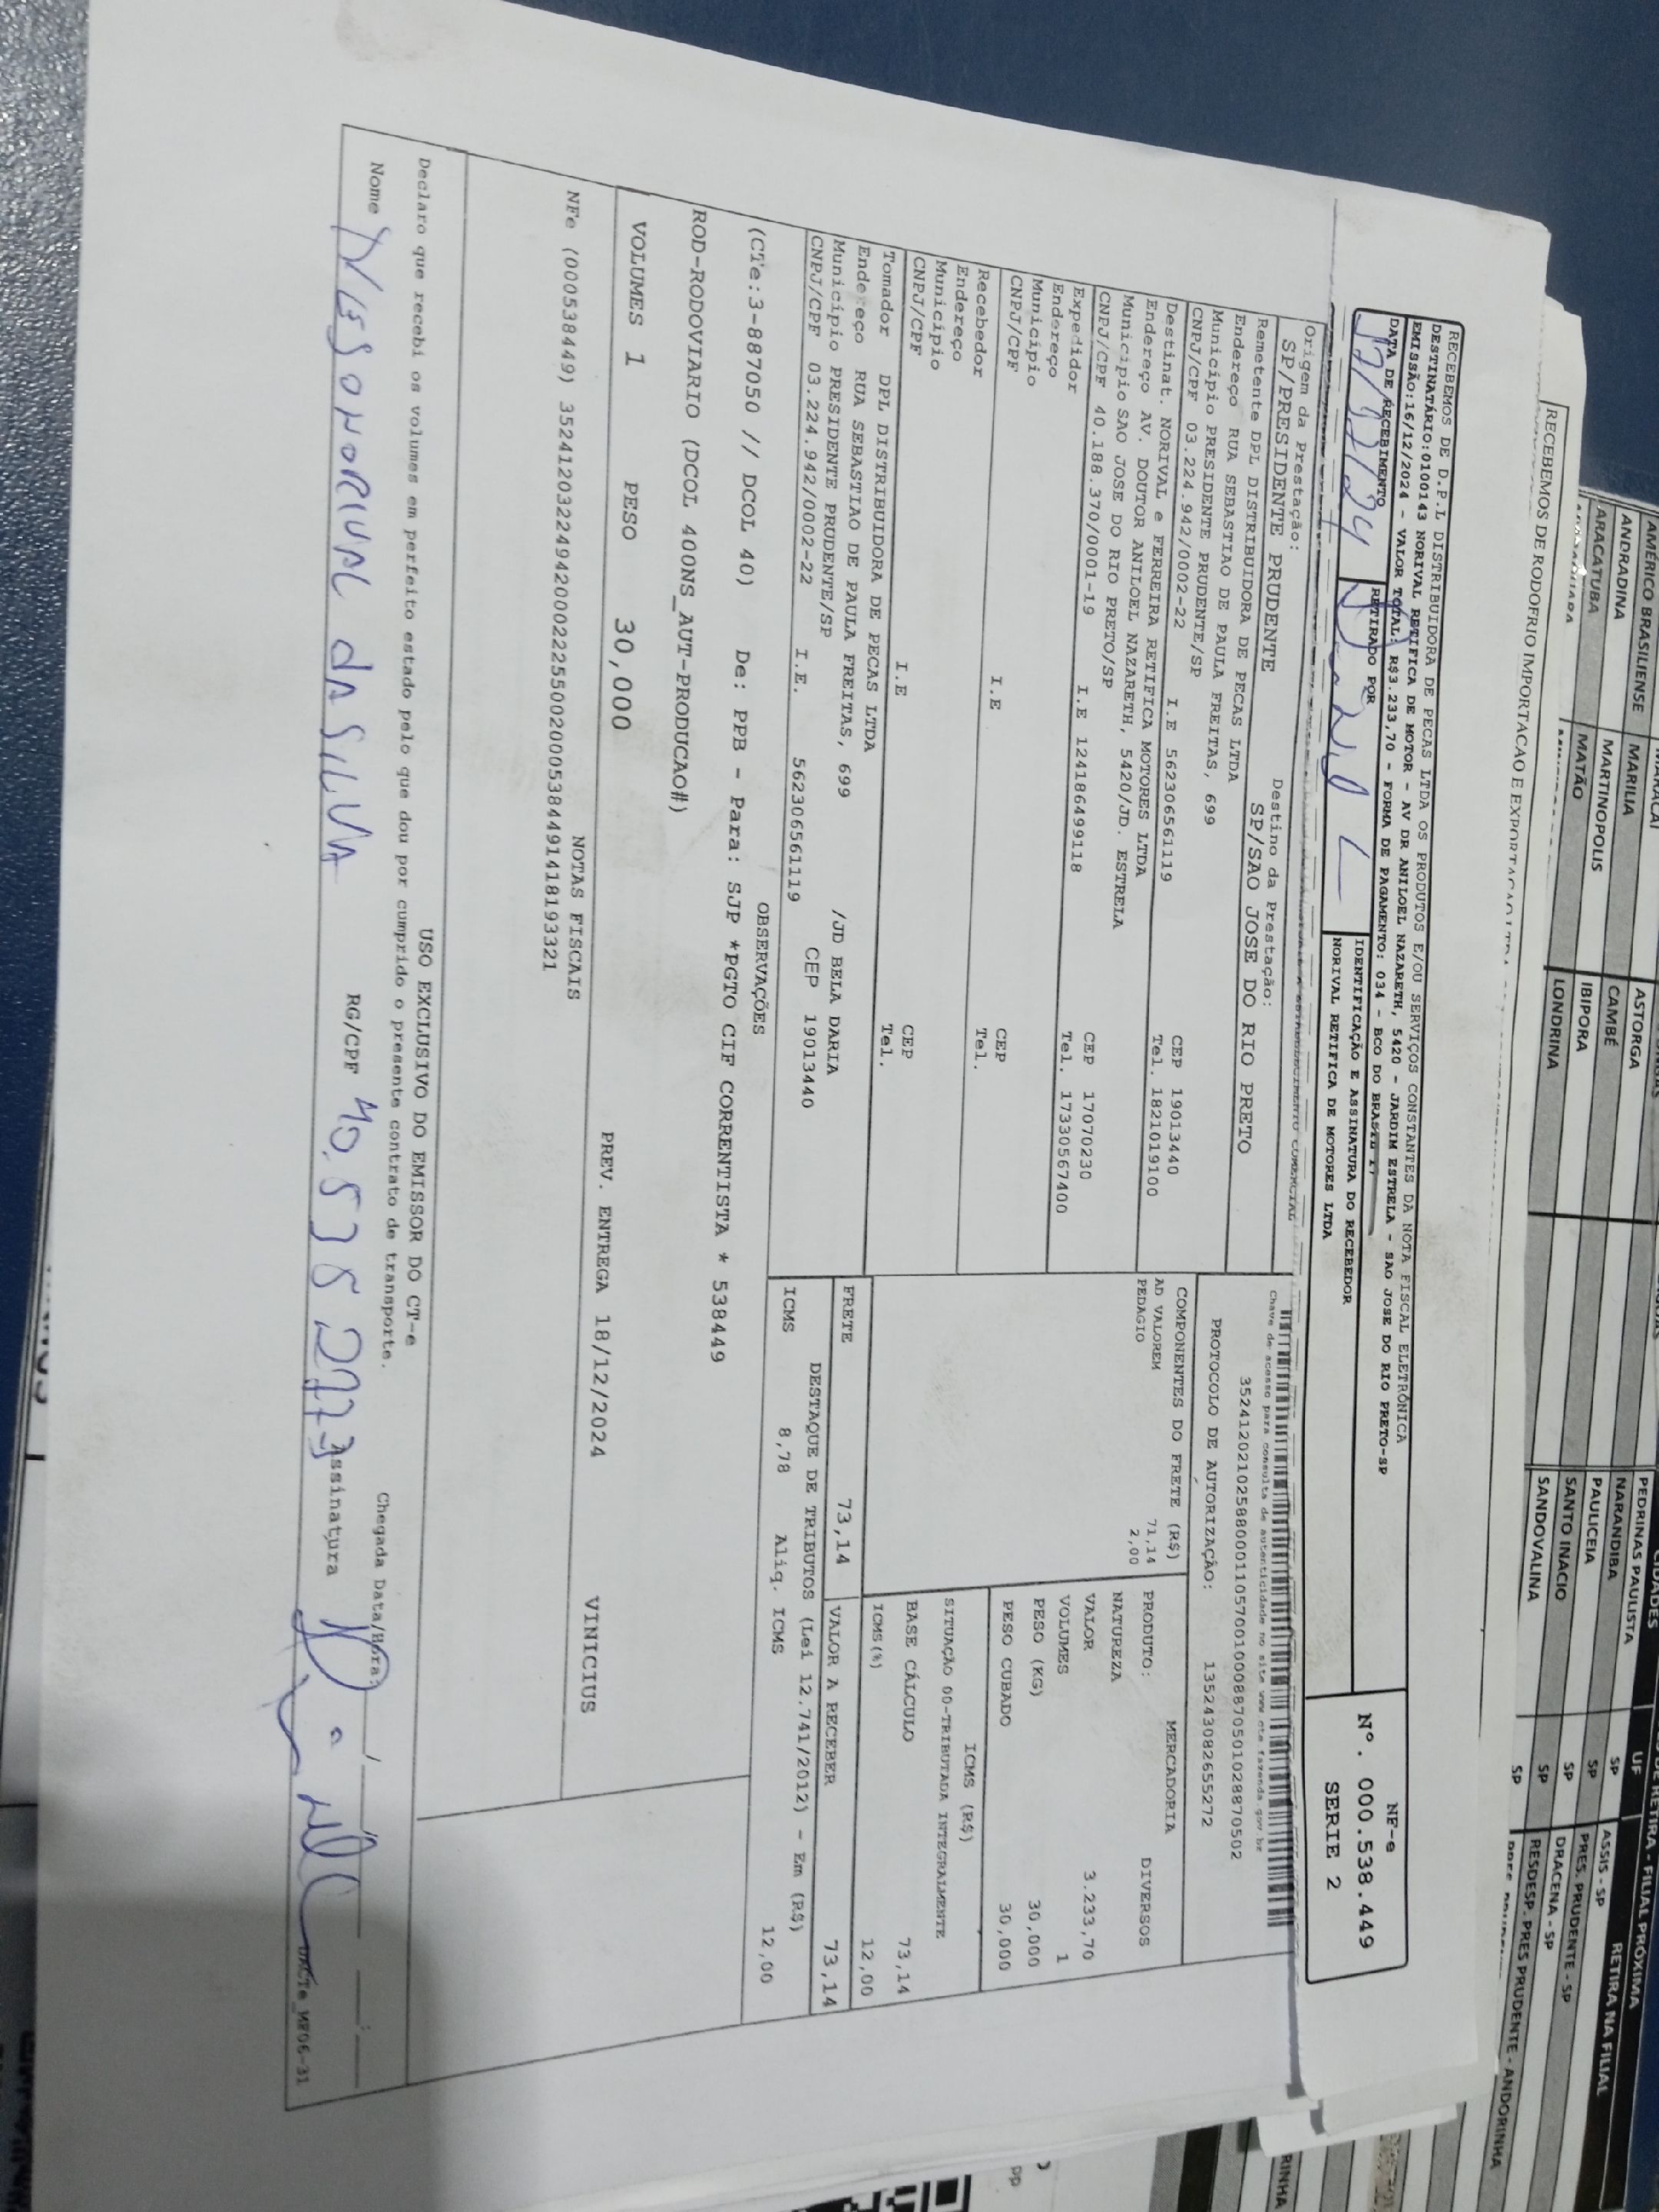 AMÉRICO BRASILIENSE
ANDRADINA MARILIA ASTORGA
ARACATUBA MARTINOPOLIS CAMBÉ
MATÃO IBIPORA
LONDRINA
PEDRINAS PAULISTA SP
NARANDIBA SP
PAULICEIA SP
SANTO INACIO SP
SANDOVALINA SP
UF
RETIRA NA FILIAL
ASSIS - SP
PRES. PRUDENTE - SP
DRACENA - SP
RESDESP. PRES PRUDENTE - ANDORINHA
RECEBEMOS DE RODOFRIO IMPORTACAO E EXPORTACAO LTDA
RECEBEMOS DE D.P.L DISTRIBUIDORA DE PECAS LTDA OS PRODUTOS E/OU SERVIÇOS CONSTANTES DA NOTA FISCAL ELETRÔNICA
DESTINATÁRIO:0100143 NORIVAL RETIFICA DE MOTOR - AV DR ANILOEL NAZARETH, 5420 - JARDIM ESTRELA - SAO JOSE DO RIO PRETO-SP
EMISSÃO:16/12/2024 - VALOR TOTAL: R$3.233,70 - FORMA DE PAGAMENTO: 034 - BCO DO BRASIL
DATA DE RECEBIMENTO RETIRADO POR IDENTIFICAÇÃO E ASSINATURA DO RECEBEDOR
NORIVAL RETIFICA DE MOTORES LTDA
NF-e
Nº. 000.538.449
SERIE 2
Chave de acesso para consulta de autenticidade no site www cte fazenda gov.br
Origem da Prestação: Destino da Prestação:
SP/PRESIDENTE PRUDENTE SP/SAO JOSE DO RIO PRETO
PROTOCOLO DE AUTORIZAÇÃO: 135243082655272
Remetente DPL DISTRIBUIDORA DE PECAS LTDA
Endereço RUA SEBASTIAO DE PAULA FREITAS, 699
Município PRESIDENTE PRUDENTE/SP CEP 19013440
CNPJ/CPF 03.224.942/0002-22 I.E 562306561119 Tel. 1821019100
Destinat. NORIVAL e FERREIRA RETIFICA MOTORES LTDA
Endereço AV. DOUTOR ANILOEL NAZARETH, 5420/JD. ESTRELA
Municipio SAO JOSE DO RIO PRETO/SP CEP 17070230
CNPJ/CPF 40.188.370/0001-19 I.E 124186499118 Tel. 17330567400
Expedidor
Endereço
Município CEP
CNPJ/CPF I.E Tel.
Recebedor
Endereço
Município CEP
CNPJ/CPF I.E Tel.
Tomador DPL DISTRIBUIDORA DE PECAS LTDA
Endereço RUA SEBASTIAO DE PAULA FREITAS, 699 /JD BELA DARIA
Município PRESIDENTE PRUDENTE/SP CEP 19013440
CNPJ/CPF 03.224.942/0002-22 I.E. 562306561119
COMPONENTES DO FRETE (R$)
AD VALOREM 71,14
PEDAGIO 2,00
MERCADORIA
PRODUTO: DIVERSOS
NATUREZA
VALOR 3.233,70
VOLUMES 1
PESO (KG) 30,000
PESO CUBADO 30,000
ICMS (R$)
SITUAÇÃO 00-TRIBUTADA INTEGRALMENTE
BASE CÁLCULO 73,14
ICMS(%) 12,00
FRETE 73,14 VALOR A RECEBER 73,14
DESTAQUE DE TRIBUTOS (Lei 12.741/2012) - Em (R$)
ICMS 8,78 Aliq. ICMS 12,00
OBSERVAÇÕES
(CTe:3-8887050 // DCOL 40) De: PPB - Para: SJP *PGTO CIF CORRENTISTA * 538449
ROD-RODOVIARIO (DCOL 400NS_AUT-PRODUCAO#)
VOLUMES 1 PESO 30,000 PREV. ENTREGA 18/12/2024 VINICIUS
NOTAS FISCAIS
NFe (000538449) 35241203224942000222550020005384491418193321
USO EXCLUSIVO DO EMISSOR DO CT-e
Declaro que recebi os volumes em perfeito estado pelo que dou por cumprido o presente contrato de transporte.
Chegada Data/Hora:
Nome RG/CPF Assinatura
DACTe_MF06-31